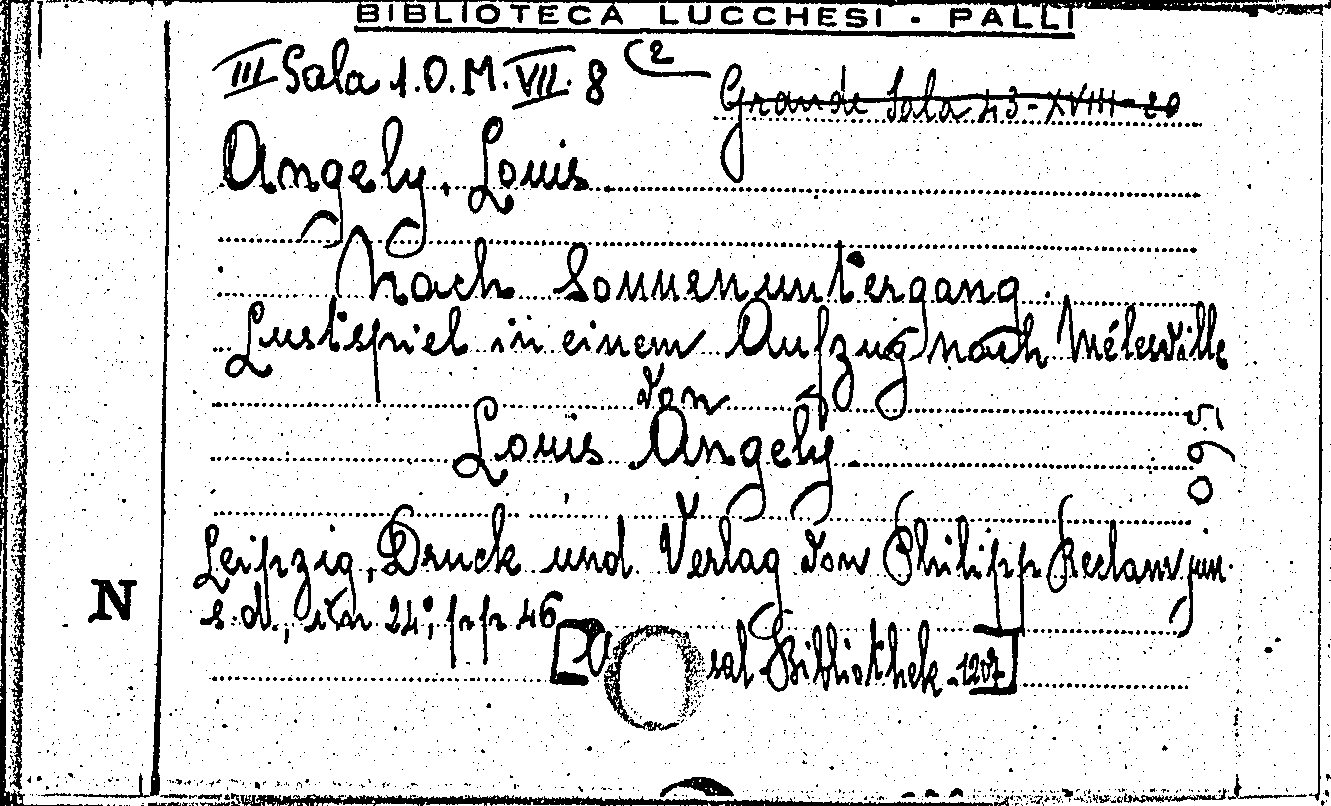 BIBLIOTECA LUCCHESI - PALLI
III Sala 1.O.M.VII.8 (2
Grande Sala 43-XVIII-20
Angely, Louis.
Nach Sonnenuntergang.
Lustspiel in einem Aufzug nach Mélesville
von
Louis Angely.
Leipzig, Druck und Verlag von Philipp Reclam jun.
N
s.d., in 24°, pp. 46
sal Bibliothek - 1207]